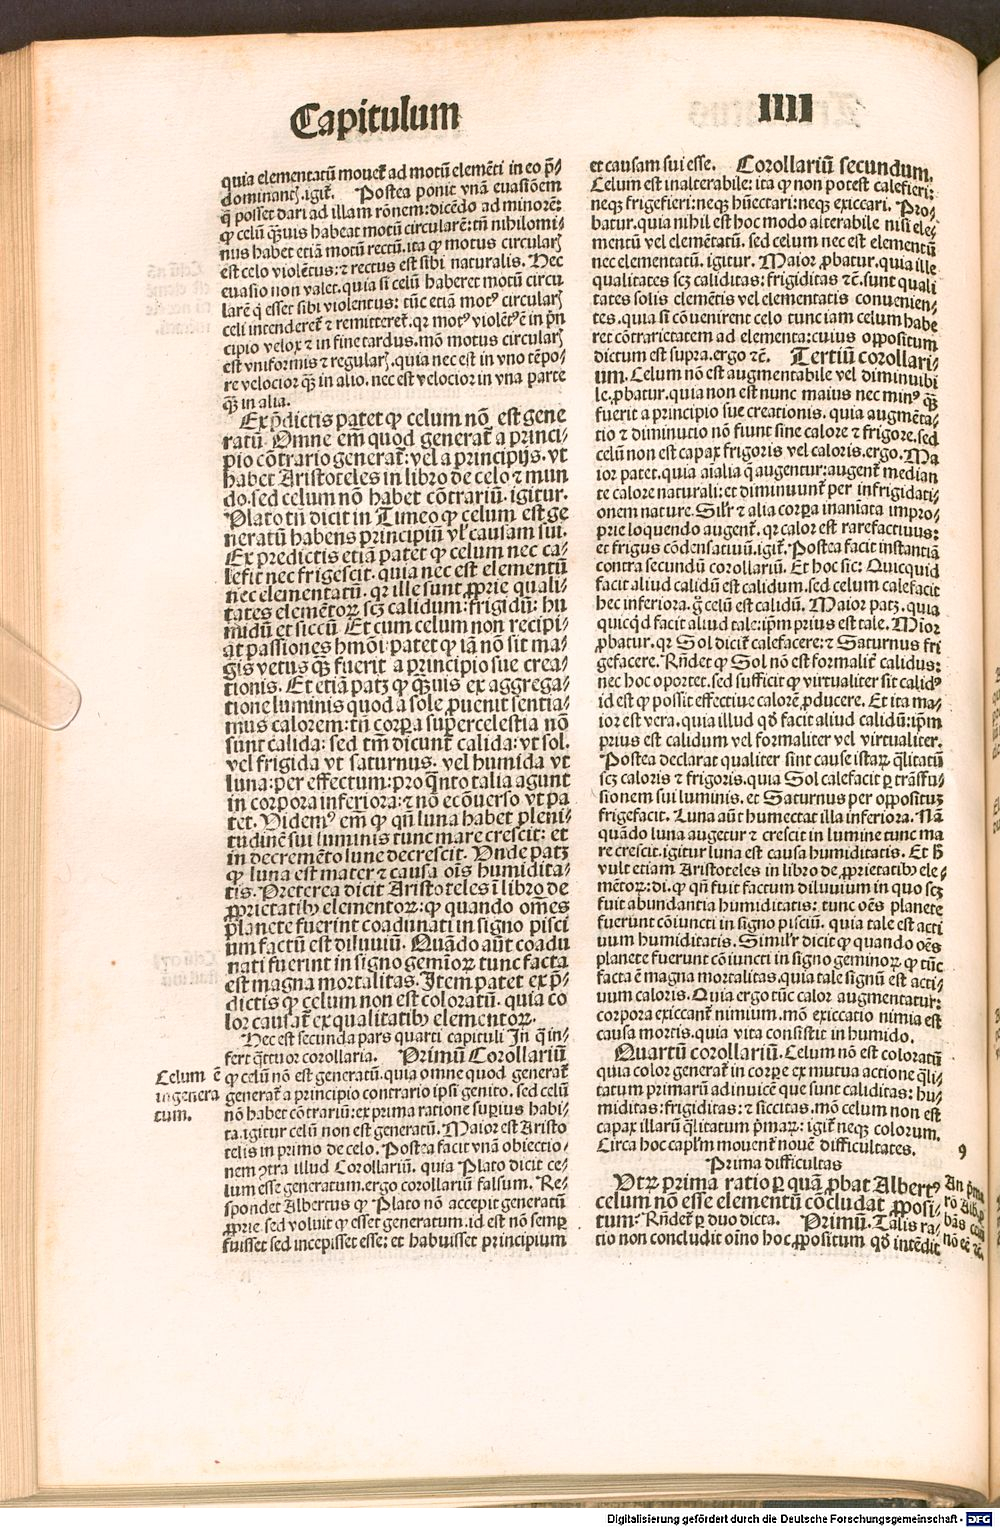 Capitulum
IIII
quia elementatū mouet̄ ad motū elemēti in eo p̄-
dominantꝭ.igit̄. Postea ponit vnā euasiōem
q̄ posset dari ad illam rōnem:dicēdo ad minorē:
ꝙ celū q̄ꝫuis habeat motū circularē:tn̄ nihilomi-
nus habet etiā motū rectū.ita ꝙ motus circularꝭ
est celo violētus:⁊ rectus est sibi naturalis. Nec
euasio non valet.quia si celū haberet motū circu
larē q̄ esset sibi violentus: tūc etiā motꝰ circularꝭ
celi intenderet̄ ⁊ remitteret̄.qꝛ motꝰ violētꝰ ē in pn̄
cipio velox ⁊ in fine tardus.mō motus circularꝭ
est vniformis ⁊ regularꝭ.quia nec est in vno tēpo-
re velocior q̄ꝫ in alio.nec est velocior in vna parte
q̄ꝫ in alia.
Ex p̄dictis patet ꝙ celum nō est gene
ratū. Omne em̄ quod generat̄ a princi-
pio cōtrario generat̄: vel a principijs. vt
habet Aristoteles in libro de celo ⁊ mun
do. sed celum nō habet cōtrariū. igitur.
Plato tn̄ dicit in Timeo ꝙ celum est ge
neratū habens principiū vl' causam sui.
Ex predictis etiā patet ꝙ celum nec ca-
lefit nec frigescit. quia nec est elementū
nec elementatū. qꝛ ille sunt ꝓprie quali-
tates elemētoꝝ scꝫ calidum: frigidū: hu
midū et siccū. Et cum celum non recipi-
at passiones hmōi patet ꝙ iā nō sit ma-
gis vetus q̄ꝫ fuerit a principio sue crea-
tionis. Et etiā patꝫ ꝙ q̄ꝫuis ex aggrega-
tione luminis quod a sole ꝓuenit sentia-
mus calorem: tn̄ corꝑa supercelestia nō
sunt calida: sed tm̄ dicunt̄ calida: vt sol.
vel frigida vt saturnus. vel humida vt
luna: per effectum: pro q̄nto talia agunt
in corpora inferiora: ⁊ nō ecōuerso vt pa
tet. Videmꝰ em̄ ꝙ qn̄ luna habet pleni-
tudinē sui luminis tunc mare crescit: et
in decremēto lune decrescit. Vnde patꝫ
ꝙ luna est mater ⁊ causa oīs humidita-
tis. Preterea dicit Aristoteles ī libro de
ꝓprietatibꝰ elementoꝝ: ꝙ quando om̄es
planete fuerint coadunati in signo pisci
um factū est diluuiū. Quādo aūt coadu
nati fuerint in signo geminoꝝ tunc facta
est magna mortalitas. Item patet ex p̄-
dictis ꝙ celum non est coloratū. quia co
lor causat̄ ex qualitatibꝰ elementoꝝ.
Hec est secunda pars quarti capituli In q̄ in-
fert q̄ttuor corollaria. Primū Corollariū
ꝙ celū nō est generatū.quia omne quod generat̄
generat̄ a principio contrario ipsi genito. sed celū
nō habet cōtrariū:ex prima ratione supius habi-
ta.igitur celū non est generatū. Maior est Aristo
telis in primo de celo. Postea facit vnā obiectio-
nem ↄtra illud Corollariū. quia Plato dicit ce-
lum esse generatum.ergo corollariū falsum. Re-
spondet Albertus ꝙ Plato nō accepit generatū
ꝓprie. sed voluit ꝙ esset generatum.id est nō semꝑ
fuisset sed incepisset esse: et habuisset principium
Celum ē
ingenera
tum.
et causam sui esse. Corollariū secundum.
Celum est inalterabile: ita ꝙ non potest calefieri:
neqꝫ frigefieri:neqꝫ hūectari:neqꝫ exiccari. Pro-
batur.quia nihil est hoc modo alterabile nisi ele-
mentū vel elemētatū. sed celum nec est elementū
nec elementatū. igitur. Maior ꝓbatur.quia ille
qualitates scꝫ caliditas: frigiditas ⁊c̄.sunt quali
tates solis elemētis vel elementatis conuenien-
tes.quia si cōuenirent celo tunc iam celum habe
ret cōtrarietatem ad elementa:cuius oppositum
dictum est supra.ergo ⁊c̄. Tertiū corollari-
um. Celum nō est augmentabile vel diminuibi
le.ꝓbatur.quia non est nunc maius nec minꝰ q̄ꝫ
fuerit a principio sue creationis. quia augmēta-
tio ⁊ diminutio nō fiunt sine calore ⁊ frigore.sed
celū non est capax frigoris vel caloris.ergo. Ma
ior patet.quia aīalia q̄ augentur:augent̄ median
te calore naturali: et diminuunt̄ per infrigidati-
onem nature. Silr̄ ⁊ alia corꝑa inanīata impro-
prie loquendo augent̄. qꝛ calor est rarefactiuus:
et frigus cōdensatiuū.igit̄. Postea facit instantiā
contra secundū corollariū. Et hoc sic: Quicquid
facit aliud calidū est calidum.sed celum calefacit
hec inferiora. g̊ celū est calidū. Maior patꝫ. quia
quicq̄d facit aliud tale:ip̄m prius est tale. Mior
ꝓbatur. qꝛ Sol dicit̄ calefacere: ⁊ Saturnus fri
gefacere. Rn̄det ꝙ Sol nō est formalit̄ calidus:
nec hoc oportet.sed sufficit ꝙ virtualiter sit calidꝰ
id est ꝙ possit effectiue calorē ꝓducere. Et ita ma-
ior est vera.quia illud qd̄ facit aliud calidū:ip̄m
prius est calidum vel formaliter vel virtualiter.
Postea declarat qualiter sint cause istaꝝ q̄litatū
scꝫ caloris ⁊ frigoris.quia Sol calefacit ꝑ trāsfu-
sionem sui luminis. et Saturnus per oppositum
frigefacit. Luna aūt humectat illa inferiora. Nā
quādo luna augetur ⁊ crescit in lumine tunc ma
re crescit.igitur luna est causa humiditatis. Et h̄
vult etiam Aristoteles in libro de ꝓprietatibꝰ ele-
mētoꝝ: di. ꝙ qn̄ fuit factum diluuium in quo scꝫ
fuit abundantia humiditatis: tunc oēs planete
fuerunt cōiuncti in signo pisciū. quia tale est acti
uum humiditatis. Simil'r dicit ꝙ quando oēs
planete fuerunt cōiuncti in signo geminoꝝ ꝙ tūc
facta ē magna mortalitas.quia tale signū est acti-
uum caloris. Quia ergo tūc calor augmentatur:
corpora exiccant̄ nimium. mō exiccatio nimia est
causa mortis.quia vita consistit in humido.
Quartū corollariū. Celum nō est coloratū
quia color generat̄ in corꝑe ex mutua actione q̄li-
tatum primarū adinuicē que sunt caliditas: hu-
miditas:frigiditas: ⁊ siccitas.mō celum non est
capax illarū q̄litatum p̄maꝝ: igit̄ neqꝫ colorum.
Circa hoc capl'm mouent̄ nouē difficultates.
Prima difficultas
Vtrꝝ prima ratio ꝑ quā ꝓbat Albertꝰ
celum nō esse elementū cōcludat ꝓposi-
tum: Rn̄det̄ ꝑ duo dicta. Primū. Talis ra-
tio non concludit oīno hoc ꝓpositum qd̄ intēdit
9
An p̄ma
rō Alb.ꝓ
bās
nō eē
Digitalisierung gefördert durch die Deutsche Forschungsgemeinschaft - DFG